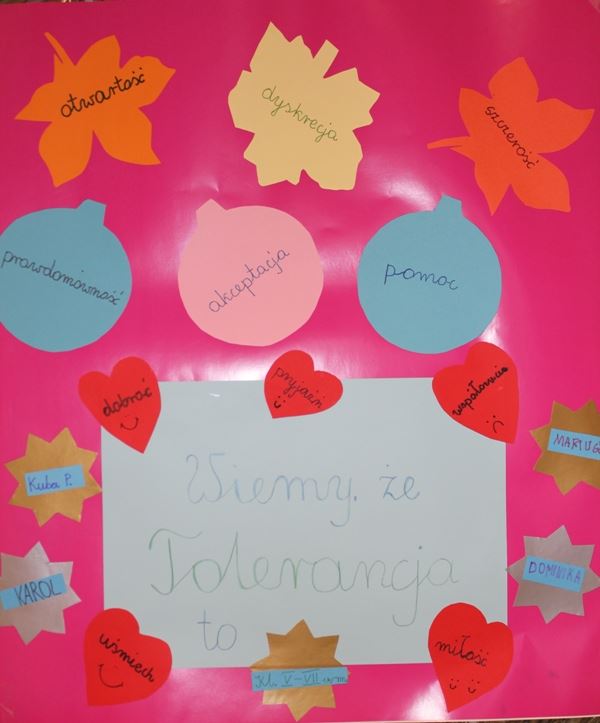 otwartość
dyskrecja
szczerość
prawdomówność
akceptacja
pomoc
dobroć
przyjaźń
Kuba P.
MARIUSZ
Wiemy, że
Tolerancja
to
KAROL
DOMINIKA
uśmiech
Kl. V-VII
miłość